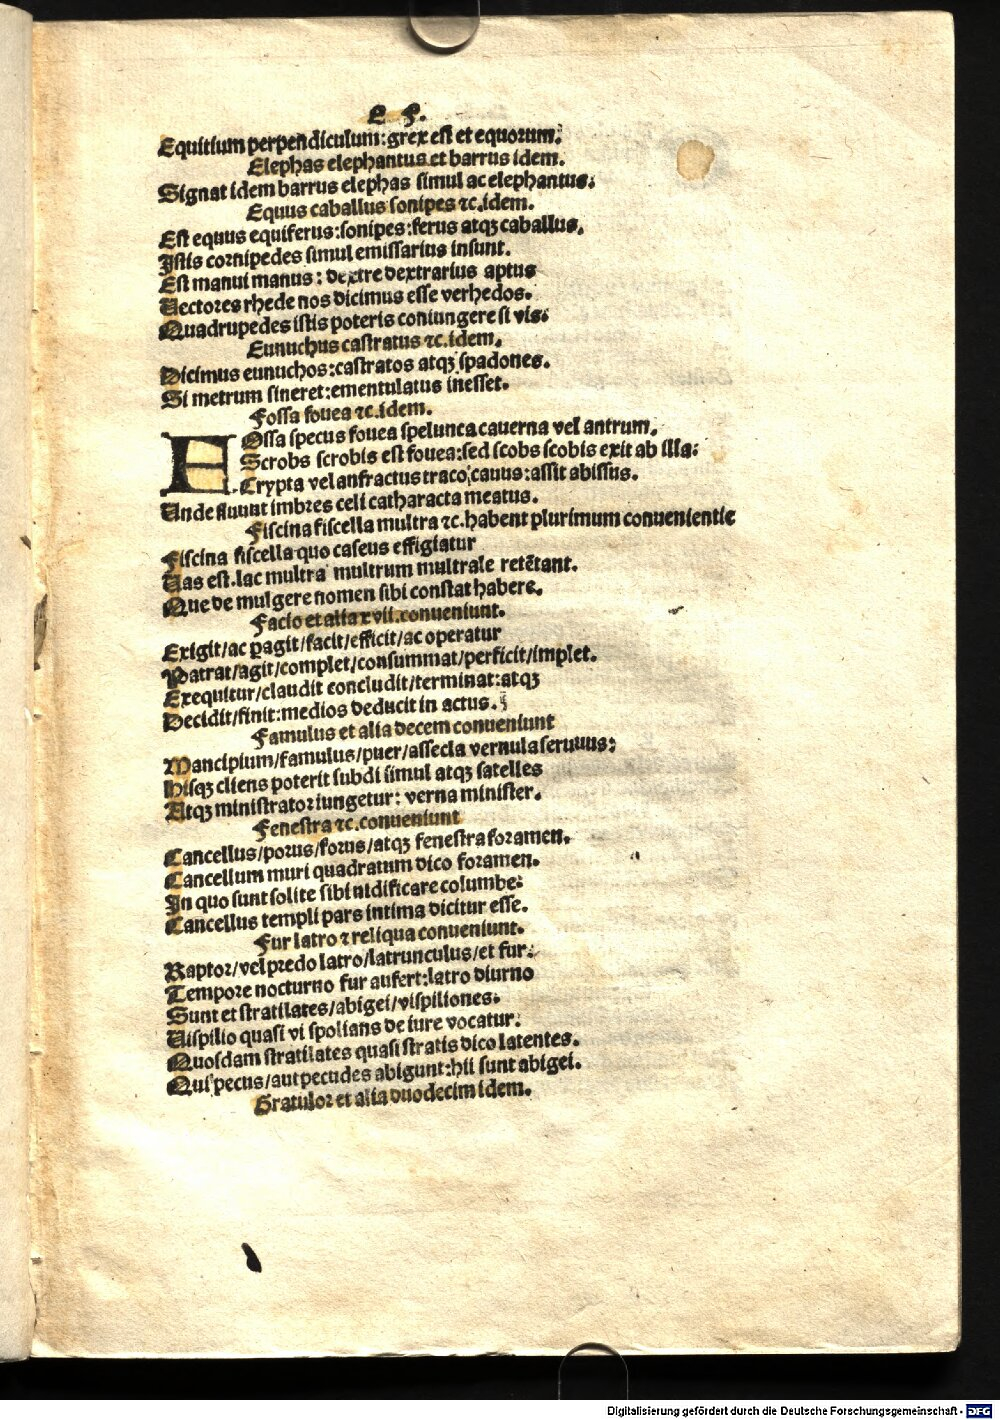 E F.
Equitium perpendiculum: grex est et equorum.
Elephas elephantus et barrus idem.
Signat idem barrus elephas simul ac elephantus.
Equus caballus sonipes ⁊c. idem.
Est equus equiferus: sonipes: ferus atqꝫ caballus.
Istis cornipedes simul emissarius insunt.
Est manui manus: dextre dextrarius aptus
Uectores rhede nos dicimus esse verhedos.
Quadrupedes istis poteris coniungere si vis:
Eunuchus castratus ⁊c. idem.
Dicimus eunuchos: castratos atqꝫ spadones.
Si metrum sineret: ementulatus inesset.
Fossa fouea ⁊c. idem.
FOssa specus fouea spelunca cauerna vel antrum.
Scrobs scrobis est fouea: sed scobs scobis exit ab illa:
Crypta vel anfractus traco, cauus: assit abissus.
Unde fluunt imbres celi catharacta meatus.
Fiscina fiscella multra ⁊c. habent plurimum conuenientie
Fiscina fiscella quo caseus effigiatur
Uas est. lac multra multrum multrale retētant.
Que de mulgere nomen sibi constat habere.
Facio et alia xvii. conueniunt.
Exigit/ac pagit/facit/efficit/ac operatur
Patrat/agit/complet/consummat/perficit/implet.
Exequitur/claudit concludit/terminat: atqꝫ
Decidit/finit: medios deducit in actus.
Famulus et alia decem conueniunt
Mancipium/famulus/puer/assecla vernula seruuus:
Hisqꝫ cliens poterit subdi simul atqꝫ satelles
Atqꝫ ministrator iungetur: verna minister.
Fenestra ⁊c. conueniunt
Cancellus/porus/forus/atqꝫ fenestra foramen.
Cancellum muri quadratum dico foramen.
In quo sunt solite sibi nidificare columbe:
Cancellus templi pars intima dicitur esse.
Fur latro ⁊ reliqua conueniunt.
Raptor/vel predo latro/latrunculus/et fur:
Tempore nocturno fur aufert: latro diurno
Sunt et stratilates/abigei/vispiliones.
Uispilio quasi vi spolians de iure vocatur:
Quosdam stratilates quasi stratis dico latentes.
Qui pecus/aut pecudes abigunt: hii sunt abigei.
Gratulor et alia duodecim idem.
Digitalisierung gefördert durch die Deutsche Forschungsgemeinschaft - DFG